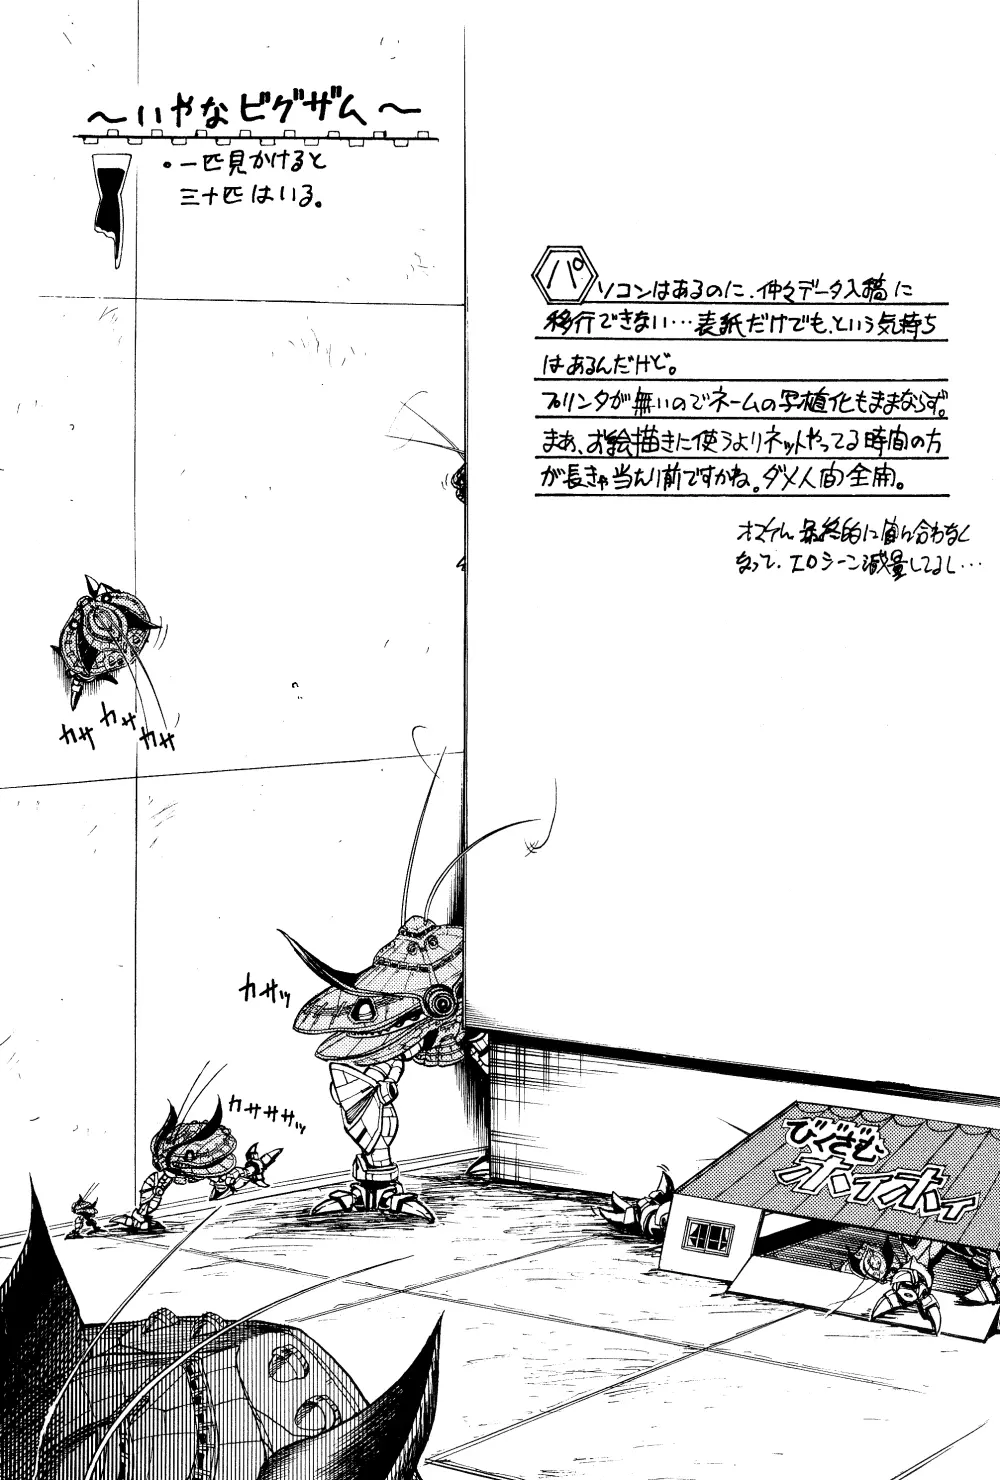 ～いやなビグザム～
・一匹見かけると
三十匹はいる。
パソコンはあるのに、仲々データ入稿に
移行できない…表紙だけでも、という気持ち
はあるんだけど。
プリンタが無いのでネームの写植化もままならず。
まあ、お絵描きに使うよりネットやってる時間の方
が長きゃ当たり前ですかね。ダメ人間全開。
オマケに最終的に間に合わなく
なって、エロシーン減量してるし…
カサ カサ カサ
カサッ
カサササッ
びぐざむ
ホイホイ